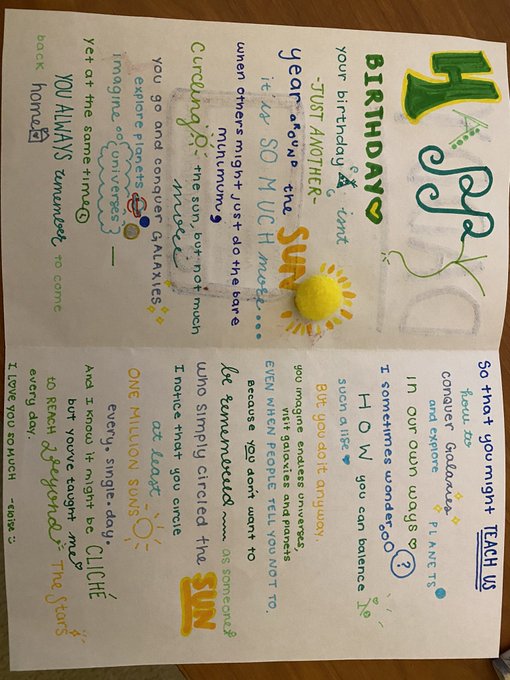 HAPPY
BIRTHDAY
your birthday isnt
-JUST ANOTHER-
year AROUND the SUN
it is SO MUCH more...
when others might just do the bare
minumum,
Circling the sun, but not much
more
you go and conquer GALAXIES
explore planets
imagine universes
yet at the same time
YOU ALWAYS remember to come
back home
So that you might TEACH US
how to
conquer Galaxies
and explore PLANETS
in our own ways
I sometimes wonder... ?
HOW you can balence
such a lise
But you do it anyway.
you imagine endless universes,
visit galaxies and planets
EVEN WHEN PEOPLE TELL YOU NOT TO.
Because you don't want to
be remembered as someone
who simply circled the SUN
I notice that you circle
at least
ONE MILLION SUNS
every. single. day.
And I know it might be CLICHÉ
but you've taught me
to REACH Beyond The Stars
every day.
I LOVE YOU SO MUCH -ELOISE :)